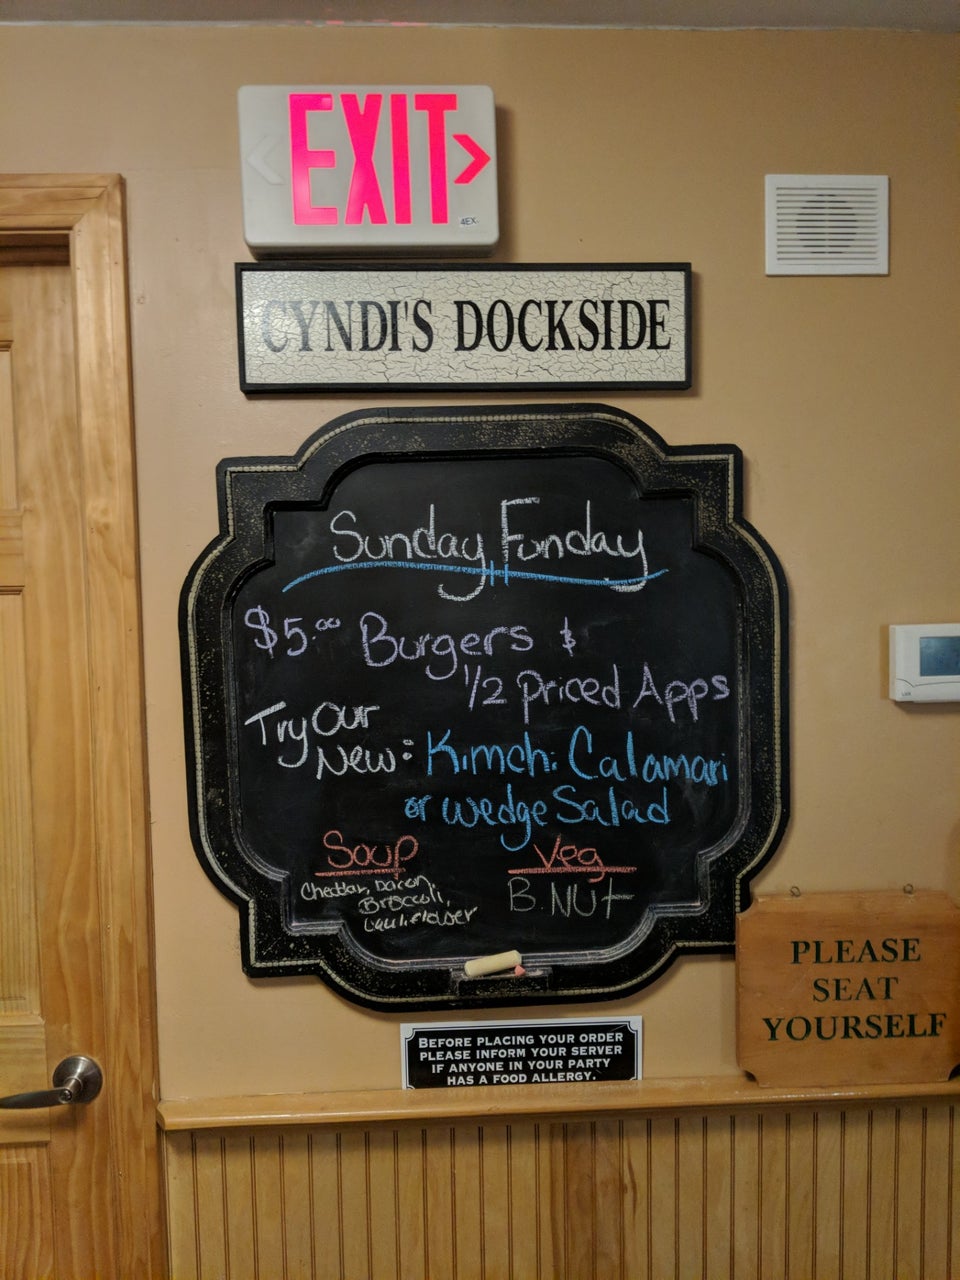 EXIT
4EX
CYNDI'S DOCKSIDE
Sunday Funday
$5.00 Burgers &
1/2 Priced Apps
Try Our
New: Kimchi Calamari
or wedge Salad
Soup
Cheddar, bacon,
Broccoli,
Cauliflower
Veg
B.Nut
PLEASE
SEAT
YOURSELF
BEFORE PLACING YOUR ORDER
PLEASE INFORM YOUR SERVER
IF ANYONE IN YOUR PARTY
HAS A FOOD ALLERGY.